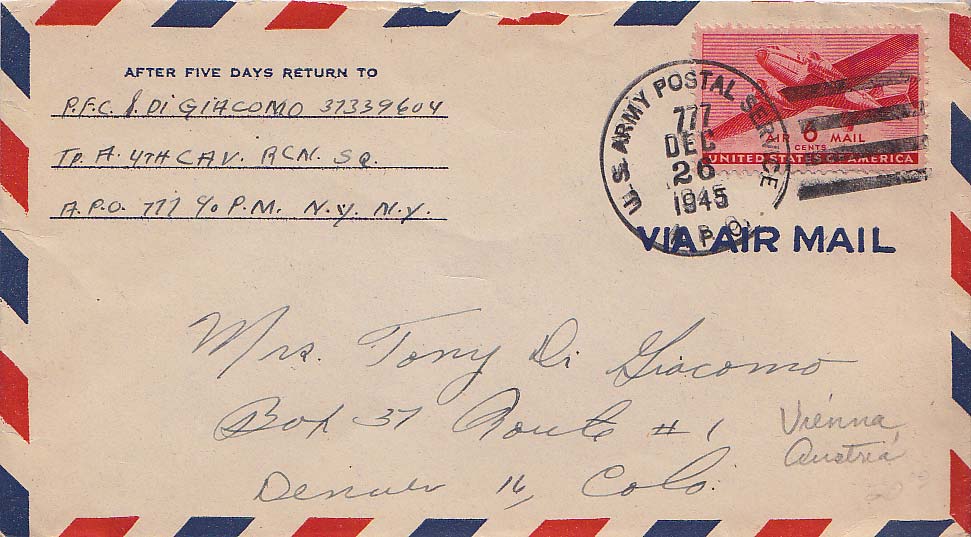 AFTER FIVE DAYS RETURN TO
P.F.C. J. DI GIACOMO 37339604
Tp. A. 4TH CAV. RCN. SQ.
A.P.O. 777 c/o P.M. N.Y. N.Y.
U.S. ARMY POSTAL SERVICE
777
DEC
26
1945
A.P.O.
AIR 6 MAIL
CENTS
UNITED STATES OF AMERICA
VIA AIR MAIL
Mrs. Tony Di Giacomo
Box 37 Route #1
Denver 16, Colo.
Vienna,
Austria